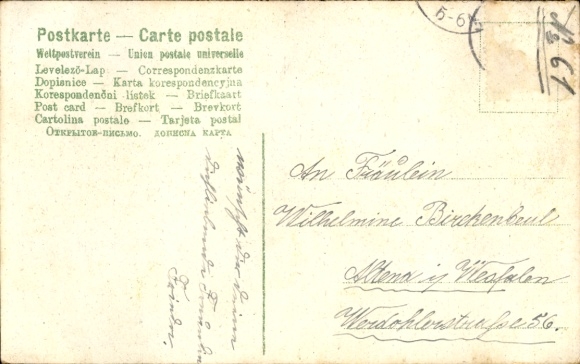 Postkarte — Carte postale
Weltpostverein — Union postale universelle
Levelező-Lap — Correspondenzkarte
Dopisnice — Karta korespondencyjna
Korespondenční lístek — Briefkaart
Post card — Brefkort — Brevkort
Cartolina postale — Tarjeta postal
Открытое-письмо. дописна карта
5-6
61
wünscht dir deine
Freundin
An Fräulein
Wilhelmine Birckenbeul
Altena i/ Westfalen
Werdohlerstrasse 56.